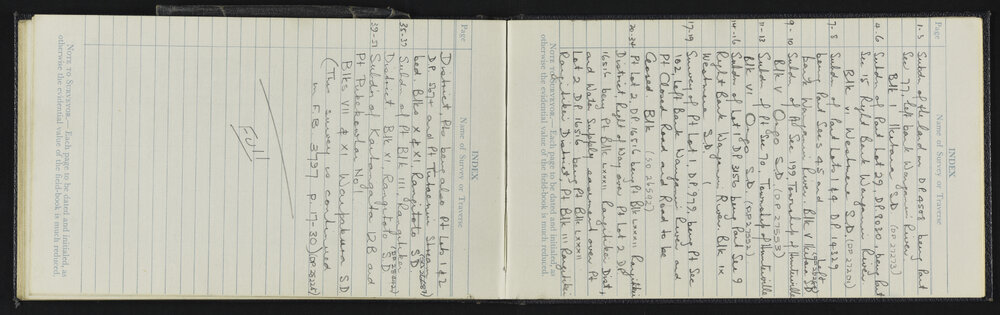 INDEX
Page Name of Survey or Traverse
1-3 Subdn of the land on D.P. 4508 being Part
Sec 77, left bank Wanganui River,
Blk 1 Ikitara S.D. (DP 27273)
4-6 Subdn of Part Lot 29, DP 8020 being Part
Sec 15 Right Bank Wanganui River
Blk VI Westmere S.D. (DP 27201)
7-8 Subdn of Part Lots 1 & 4 DP 14329
being Part Secs 45 and
bank Wanganui River, Blk V Ikitara SD
9-10 Subdn of Al Sec 199 Township of Hunterville
Blk V Ongo S.D. (DP 27553)
11-13 Subdn of Pt Sec 70, Township of Hunterville
Blk VI Ongo S.D. (DP 27552)
14-16 Subdn of Lot 1 DP 3156 being Part Sec 9
Right Bank Wanganui River Blk IX
Westmere S.D.
17-19 Survey of Pt Lot 1, DP 979, being Pt Sec
102, Left Bank Wanganui River and
Pt Closed Road and Road to be
Closed. Blk (SO 26592)
20-34 Pt Lot 2, DP 16516 being Pt Blk LXXXII Rangitikei
District, Right of Way over Pt Lot 2 DP
16516 being Pt Blk LXXXII Rangitikei Dist,
and Water Supply easement over Pt
Lot 2 DP 16516 being Pt Blk LXXXII
Rangitikei District, Pt Blk III Rangitikei
NOTE TO SURVEYOR.—Each page to be dated and initialed, as
otherwise the evidential value of the field-book is much reduced.
INDEX
Page Name of Survey or Traverse
District Pts being also Pt Lots 1 & 2
DP 587 and Pt Tutaenui Stream
bed Blks X & XI, Rangitoto S.D.
35-37 Subdn of Pt Blk III Rangitikei
District Blk XI Rangitoto S.D.
39-51 Subdn of Kauangaroa 12B and
Pt Pukekowhai No 1
Blks VII & XI Waipakura S.D
(This survey is continued
in F.B. 3737 P. 17-30)
Full
NOTE TO SURVEYOR.—Each page to be dated and initialed, as
otherwise the evidential value of the field-book is much reduced.